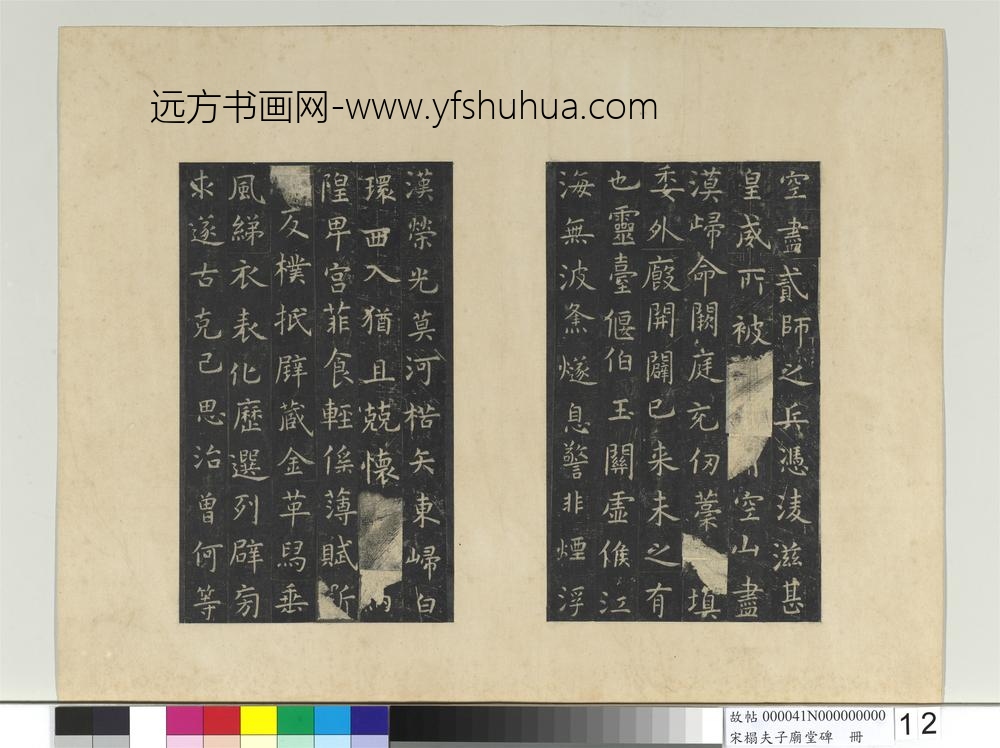 远方书画网-www.yfshuhua.com
空盡貳師之兵憑淩滋甚
皇威所被空山盡
漠歸命闕庭充仞藁填
委外廄開闢已来未之有
也靈臺偃伯玉關虛候江
海無波烽燧息警非煙浮
漢榮光莫河楛矢東歸白
環西入猶且兢懷納
隍卑宮菲食輕徭薄賦斲
反樸抵璧藏金革舄垂
風綈衣表化歷選列辟旁
求遂古克己思治曾何等
故帖 000041N000000000
宋搨夫子廟堂碑 冊
12